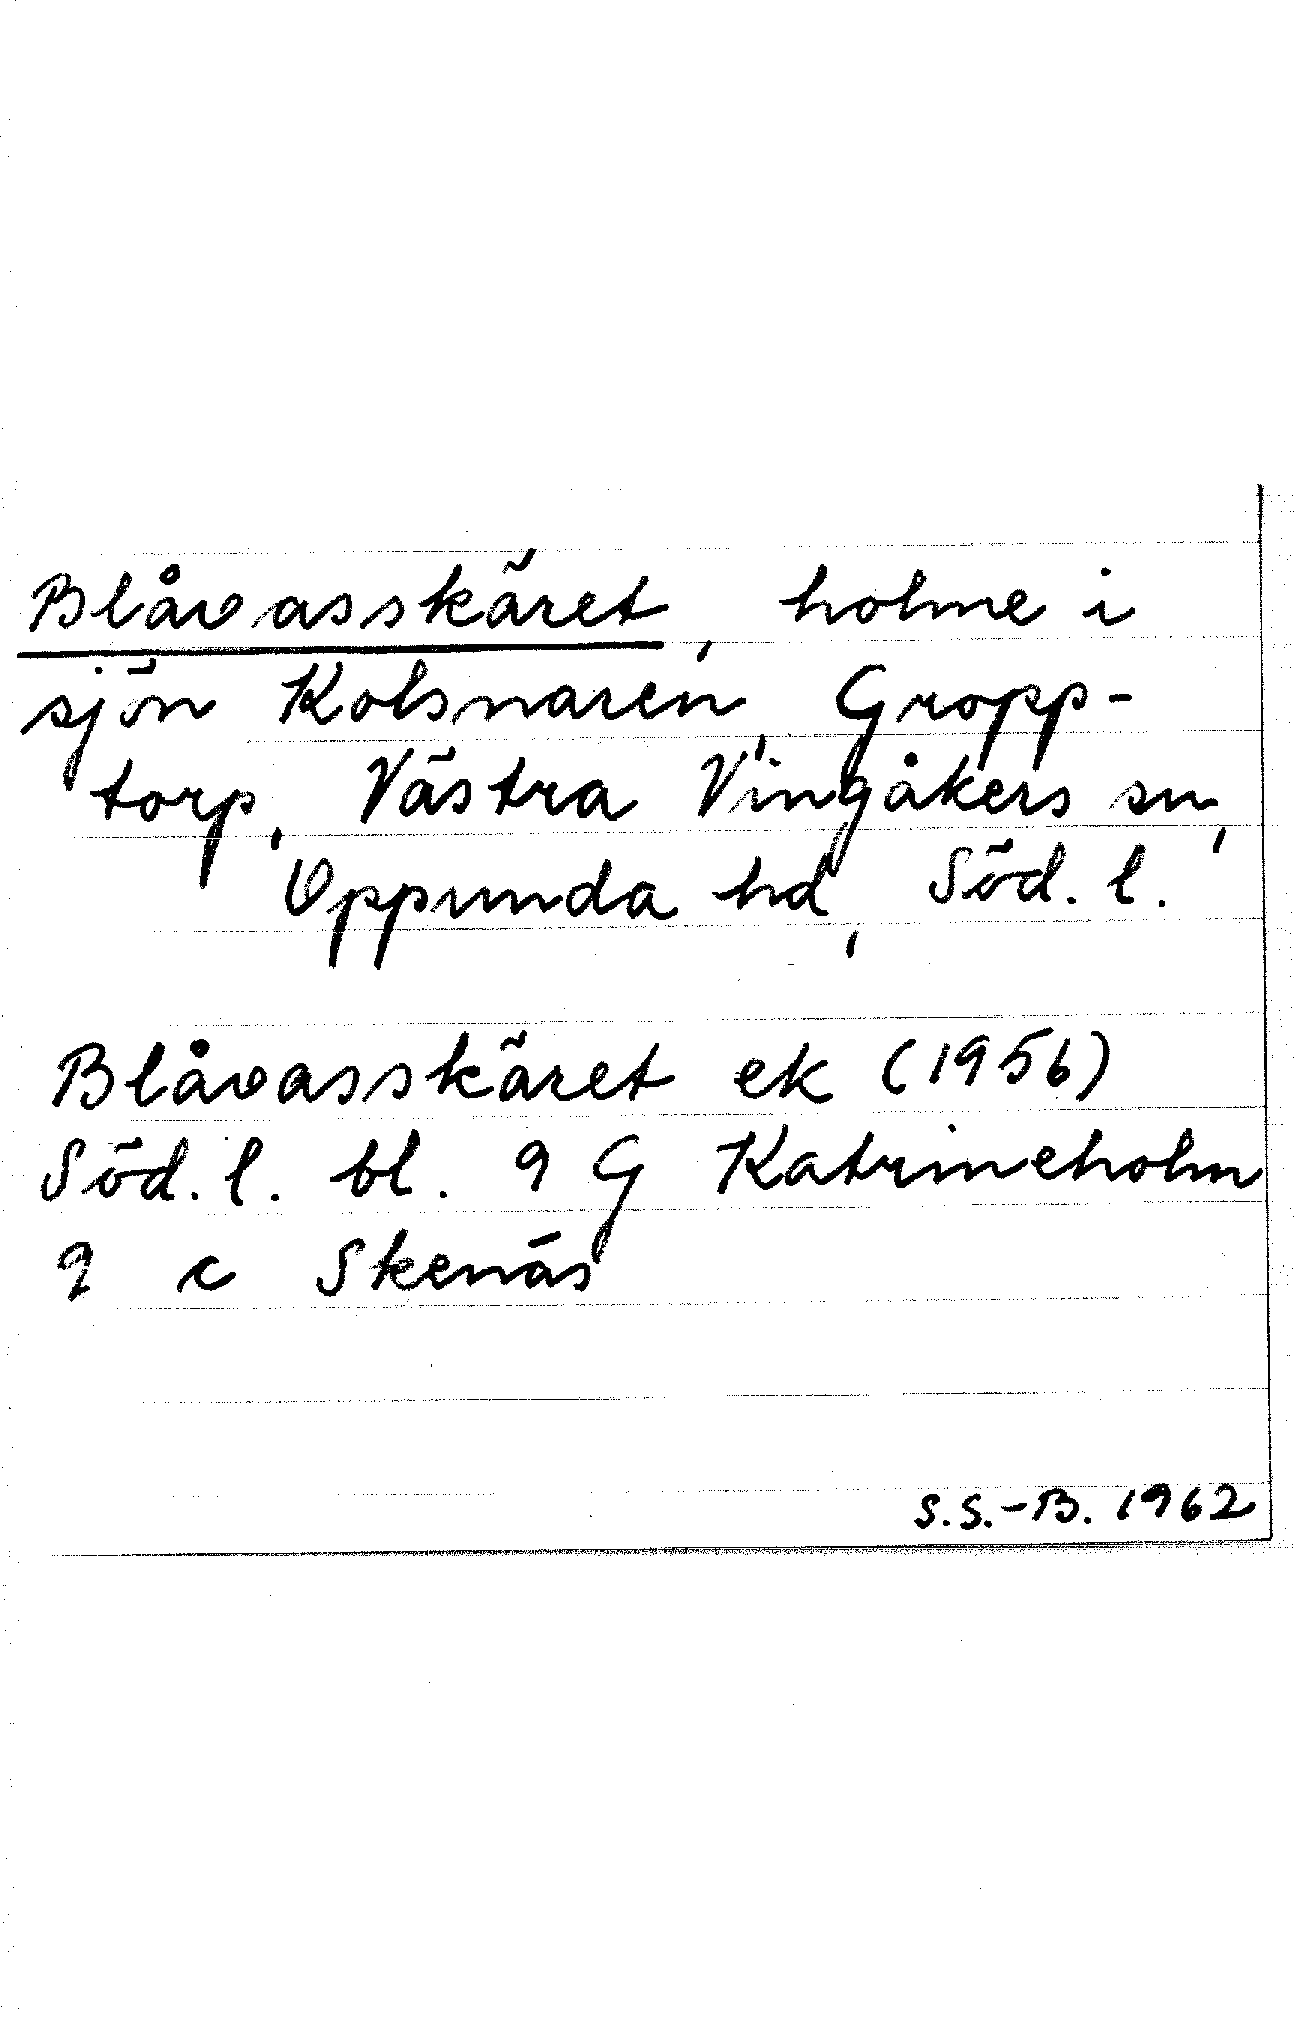 Blåvasskäret, holme i
sjön Kolsnaren, Gropp-
torp, Västra Vingåkers sn,
Oppunda hd, Söd. l.
Blåvasskäret ek (1956)
Söd. l. bl. 9 G Katrineholm
9 c Skenäs
S.S.-B. 1962